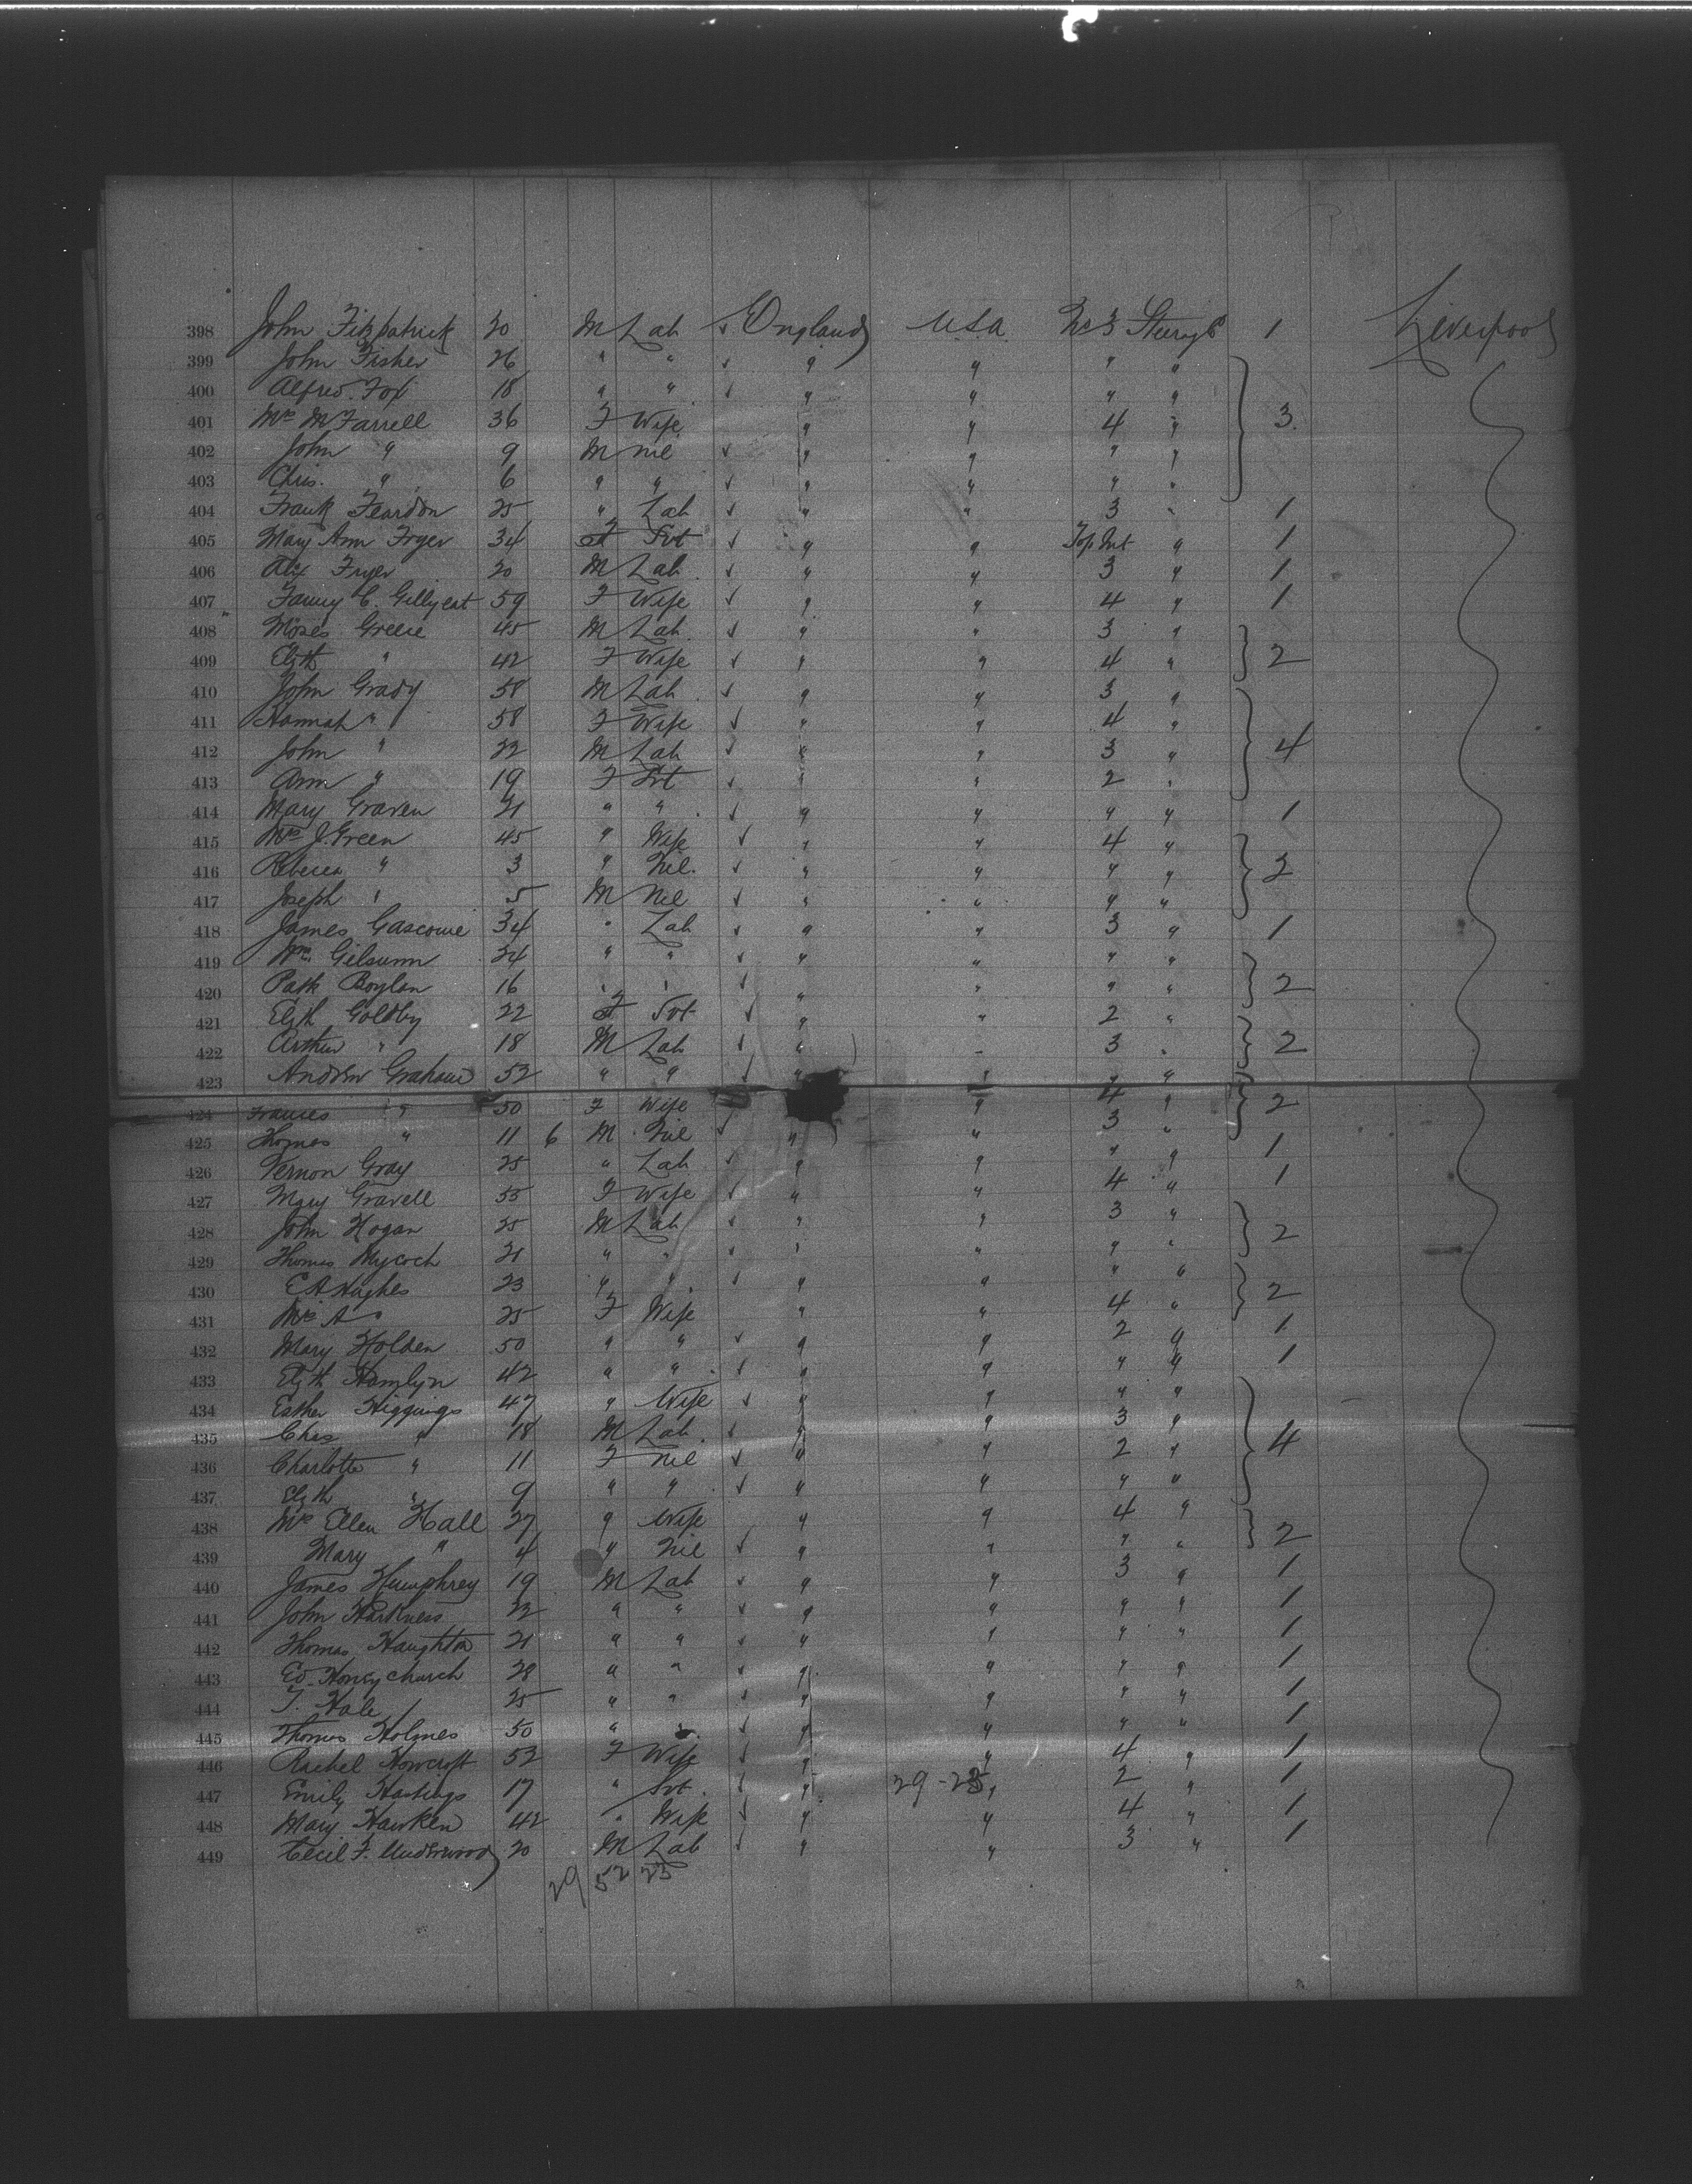 398 John Fitzpatrick 20 M Lab ✓ England U.S.A. No 3 Steerage 1 Liverpool
399 John Fisher 26 " " ✓ " " " "
400 Alfred Fox 18 " " ✓ " " " "
401 Mrs M Farrell 36 F Wife " " 4 " 3
402 John " 9 M nil ✓ " " " "
403 Chris. " 6 " " ✓ " " " "
404 Frank Feardon 25 " Lab ✓ " " 3 " 1
405 Mary Ann Fryer 34 F Svt ✓ " " Top Int " 1
406 Alx Fryer 20 M Lab ✓ " " 3 " 1
407 Fanny C. Gellyeat 59 F Wife ✓ " " 4 " 1
408 Moses Greee 45 M Lab ✓ " " 3 "
409 Elzth " 42 F Wife ✓ " " 4 " 2
410 John Grady 58 M Lab ✓ " " 3 "
411 Hannah " 58 F Wife ✓ " " 4 "
412 John " 22 M Lab ✓ " " 3 " 4
413 Ann " 19 F Svt ✓ " " 2 "
414 Mary Graven 21 " " ✓ " " " " 1
415 Mrs J. Green 45 " Wife ✓ " " 4 "
416 Rebecca " 3 " Nil ✓ " " " "
417 Joseph " 5 M Nil ✓ " " " "
418 James Gascoine 34 " Lab ✓ " " 3 " 1
419 Wm. Gilsunn 24 " " ✓ " " " "
420 Patk Boylan 16 " " ✓ " " " " 2
421 Elzth Goldby 22 F Svt ✓ " " 2 "
422 Arthur " 18 M Lab ✓ " " 3 " 2
423 Andrew Grahame 52 " " ✓ " " " "
424 Frances " 50 F Wife " 4 " 2
425 Thomas " 11 6 M Nil ✓ " " 3 "
426 Vernon Gray 25 " Lab ✓ " " " " 1
427 Mary Gravell 55 F Wife ✓ " " 4 " 1
428 John Hogan 25 M Lab ✓ " " 3 "
429 Thomas Mycoch 21 " " ✓ " " " " 2
430 E A Hughes 23 " " ✓ " " " "
431 Mrs A " 25 F Wife " " 4 " 2
432 Mary Holden 50 " " ✓ " " 2 " 1
433 Elzth Hamlyn 42 " " ✓ " " " " 1
434 Esther Higgings 47 " Wife ✓ " " " "
435 Chas " 18 M Lab ✓ " " 3 "
436 Charlotte " 11 F nil ✓ " " 2 " 4
437 Elzth " 9 " " ✓ " " " "
438 Mrs Ellen Hall 27 " Wife " " 4 "
439 Mary " 4 " Nil ✓ " " " " 2
440 James Humphrey 19 M Lab ✓ " " 3 " 1
441 John Harkness 22 " " ✓ " " " " 1
442 Thomas Haughton 21 " " ✓ " " " " 1
443 Ed. Honeychurch 28 " " ✓ " " " " 1
444 T. Hale 25 " " ✓ " " " " 1
445 Thomas Holmes 50 " " ✓ " " " " 1
446 Rachel Howcroft 52 F Wife ✓ " " 4 " 1
447 Emily Hastings 17 " Svt ✓ " 29-23 " 2 " 1
448 Mary Hawken 42 " Wife ✓ " " 4 " 1
449 Cecil F. Underwood 20 M Lab ✓ " " 3 " 1
29 52 23